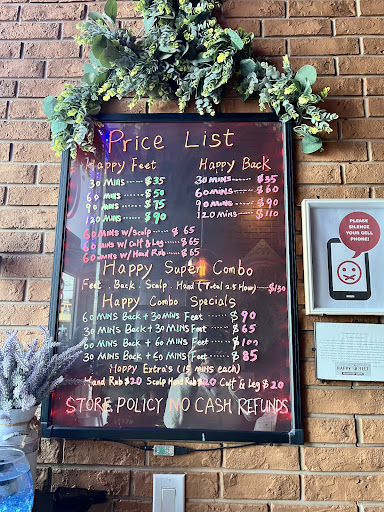 Price List
Happy Feet
30 MINS ······ $35
60 MINS ······ $50
90 MINS ······ $75
120 MINS ······ $90
60 MINS W/Scalp $65
60 MINS W/ Calf & Leg $65
60 MINS W/ Hand Rub $65
Happy Back
30 MINS ······ $35
60 MINS ······ $60
90 MINS ······ $90
120 MINS ······ $110
Happy Super Combo
Feet. Back. Scalp. Hand (Total 2.5 Hour) $130
Happy Combo Specials
60 MINS Back + 30 MINS Feet ······ $90
30 MINS Back + 30 MINS Feet ······ $65
60 MINS Back + 60 MINS Feet ······ $100
30 MINS Back + 60 MINS Feet ······ $85
Happy Extra's (15 MINS each)
Hand Rub $20 Scalp Head Rub $20 Calf & Leg $20
STORE POLICY NO CASH REFUNDS
PLEASE
SILENCE YOUR
CELL
PHONE!
HAPPY FEET